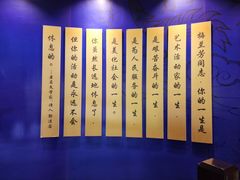 梅兰芳同志，你的一生是
艺术活动家的一生，
是艰苦奋斗的一生，
是为人民服务的一生，
是美化社会的一生。
你虽然长远地休息了，
但你的活动是永远不会
休息的。